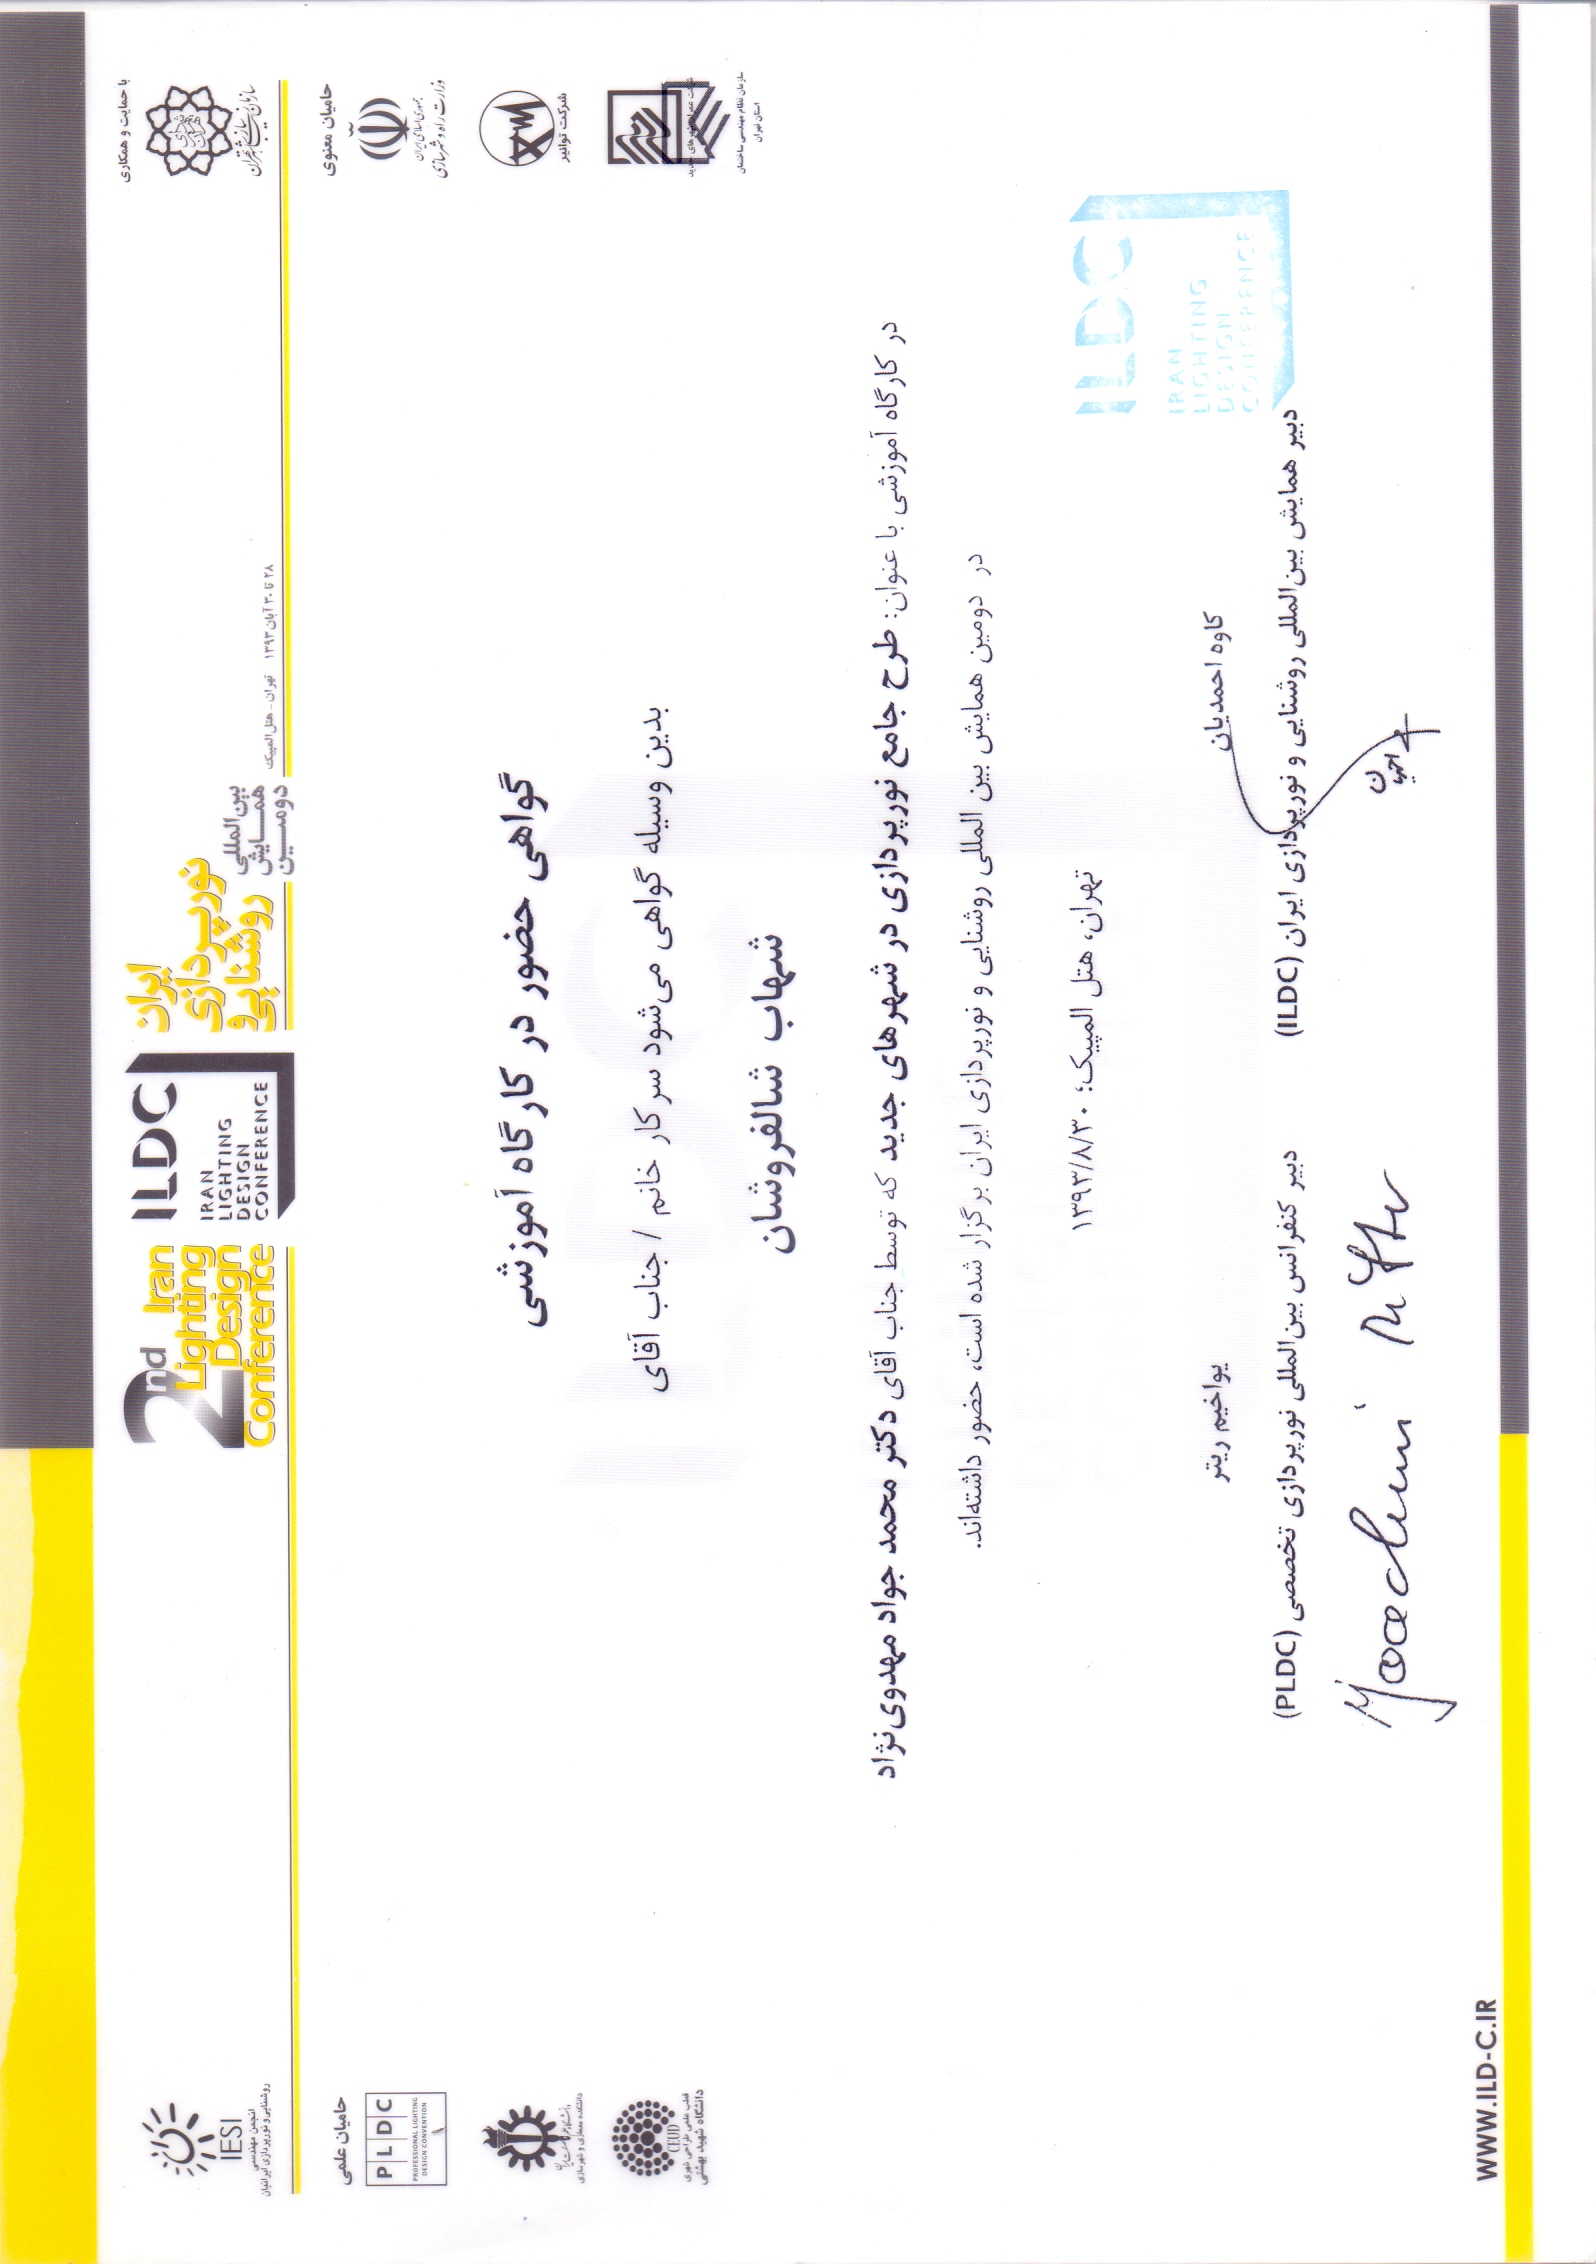 2nd Iran
Lighting
Design
Conference
ILDC
IRAN
LIGHTING
DESIGN
CONFERENCE
دومین
همایش
بین‌المللی
روشنایی و
نورپردازی
ایران
۲۸ تا ۳۰ آبان ۱۳۹۳ تهران - هتل المپیک
با حمایت و همکاری
سازمان زیباسازی شهر تهران
حامیان معنوی
جمهوری اسلامی ایران
وزارت راه و شهرسازی
شرکت توانیر
سازمان نظام مهندسی ساختمان
استان تهران
IESI
انجمن مهندسی
روشنایی و نورپردازی ایرانیان
حامیان علمی
PLDC
PROFESSIONAL LIGHTING
DESIGN CONVENTION
دانشکده معماری و شهرسازی
CEUD
قطب علمی طراحی شهری
دانشگاه شهید بهشتی
گواهی حضور در کارگاه آموزشی
بدین وسیله گواهی می‌شود سرکار خانم / جناب آقای
شهاب شالفروشان
در کارگاه آموزشی با عنوان: طرح جامع نورپردازی در شهرهای جدید که توسط جناب آقای دکتر محمد جواد مهدوی‌نژاد
در دومین همایش بین المللی روشنایی و نورپردازی ایران برگزار شده است، حضور داشته‌اند.
تهران، هتل المپیک؛ ۱۳۹۳/۸/۳۰
کاوه احمدیان
دبیر همایش بین‌المللی روشنایی و نورپردازی ایران (ILDC)
یواخیم ریتر
دبیر کنفرانس بین‌المللی نورپردازی تخصصی (PLDC)
ILDC
IRAN
LIGHTING
DESIGN
CONFERENCE
WWW.ILD-C.IR